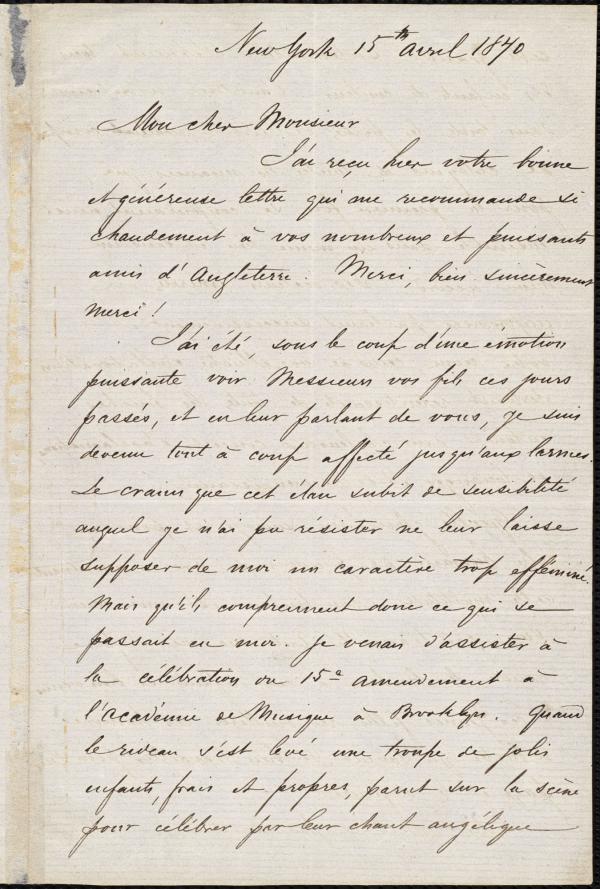 New York 15th Avril 1870
Mon cher Monsieur
J'ai reçu hier votre bonne
et généreuse lettre qui me recommande si
chaudement à vos nombreux et puissants
amis d'Angleterre. Merci, bien sincèrement
merci!
J'ai été, sous le coup d'une émotion
puissante voir Messieurs vos fils ces jours
passés, et en leur parlant de vous, je suis
devenu tout à coup affecté jusqu'aux larmes.
Je crains que cet élan subit de sensibilité
auquel je n'ai pu résister ne leur laisse
supposer de moi un caractère trop efféminé.
Mais qu'ils comprennent donc ce qui se
passait en moi. Je venais d'assister à
la célébration du 15e amendement à
l'académie de Musique à Brooklyn. Quand
le rideau s'est levé une troupe de jolis
enfants, frais et propres, parut sur la scène
pour célébrer par leur chant angélique